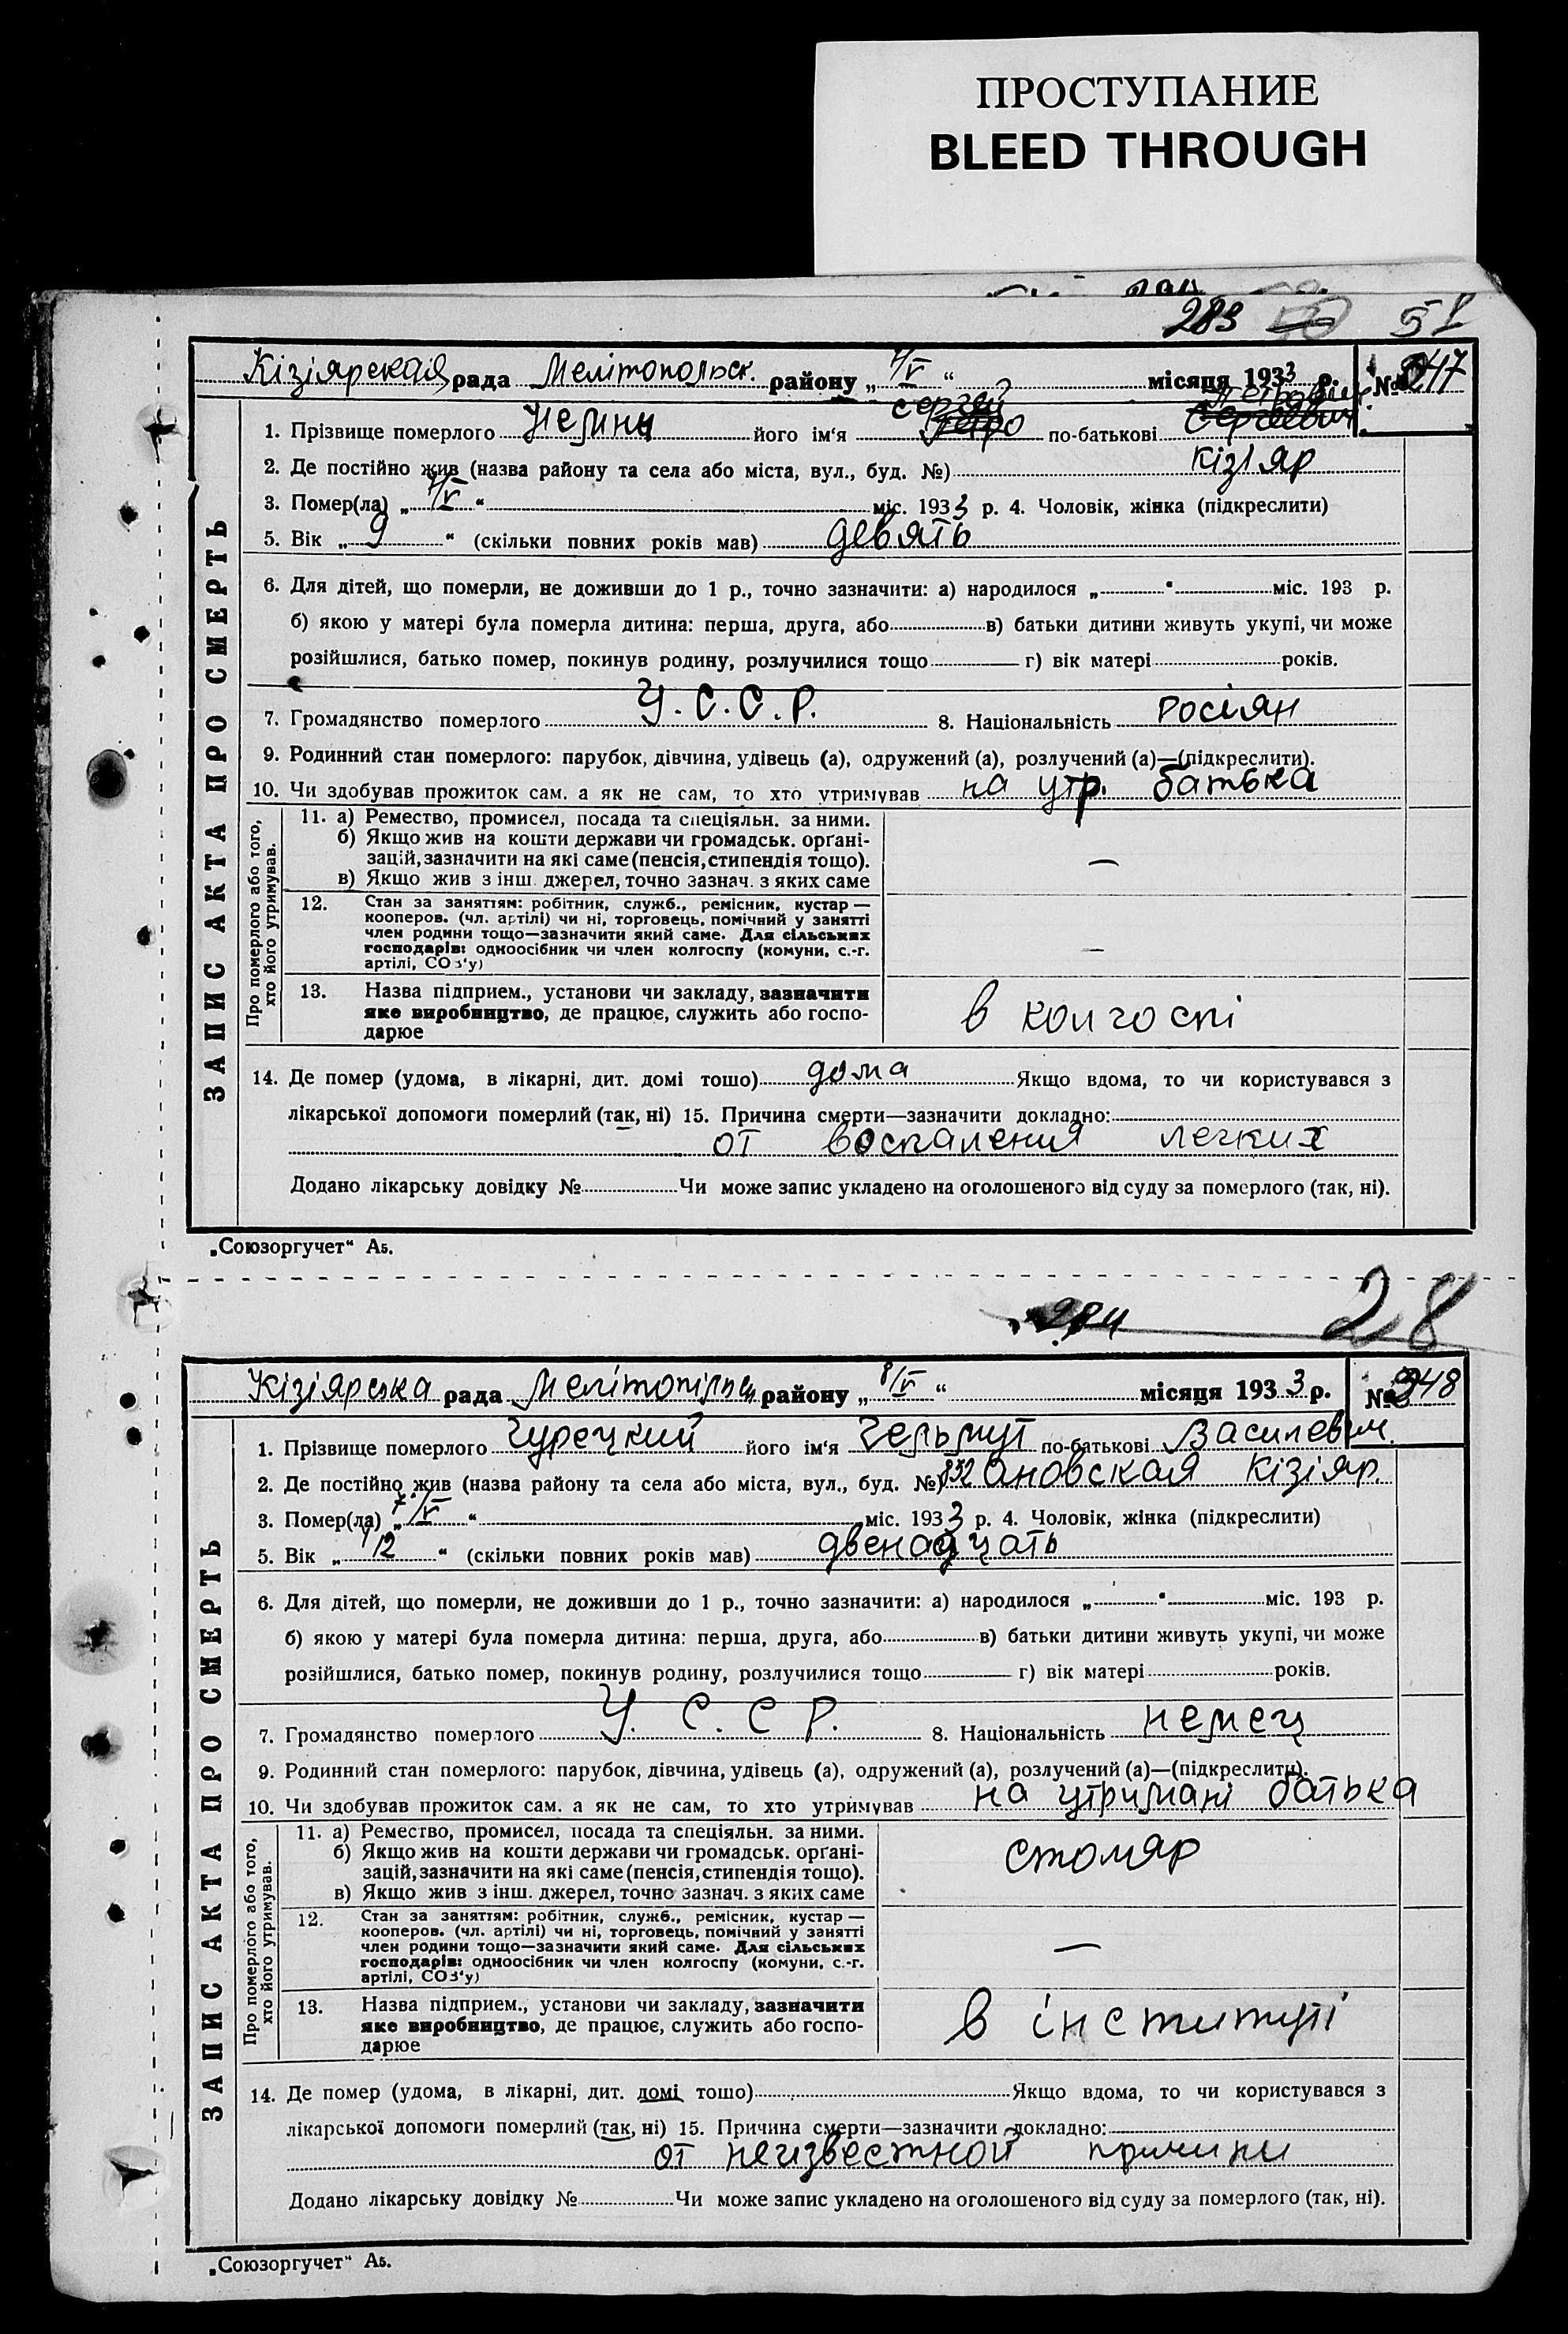 ПРОСТУПАНИЕ
BLEED THROUGH
283 51
Кізіярская рада Мелітопольск. району „ /V “ місяця 1933 р. № 247
Сергей Петрович
1. Прізвище померлого його ім'я Петро по-батькові Сергеевич
2. Де постійно жив (назва району та села або міста, вул., буд. №) Кізіяр
3. Помер(ла) „ /V “ міс. 1933 р. 4. Чоловік, жінка (підкреслити)
5. Вік „ 9 “ (скільки повних років мав) девять
6. Для дітей, що померли, не доживши до 1 р., точно зазначити: а) народилося „ “ міс. 193 р.
б) якою у матері була померла дитина: перша, друга, або в) батьки дитини живуть укупі, чи може
розійшлися, батько помер, покинув родину, розлучилися тощо г) вік матері років.
7. Громадянство померлого У.С.С.Р. 8. Національність росіян
9. Родинний стан померлого: парубок, дівчина, удівець (а), одружений (а), розлучений (а)—(підкреслити).
10. Чи здобував прожиток сам. а як не сам, то хто утримував на утр. батька
Про померлого або того, хто його утримував.
11. а) Ремество, промисел, посада та спеціяльн. за ними.
б) Якщо жив на кошти держави чи громадськ. орґані-
зацій, зазначити на які саме (пенсія, стипендія тощо). —
в) Якщо жив з інш. джерел, точно зазнач. з яких саме
12. Стан за заняттям: робітник, служб., ремісник, кустар —
кооперов. (чл. артілі) чи ні, торговець, помічний у занятті
член родини тощо—зазначити який саме. Для сільських
господарів: одноосібник чи член колгоспу (комуни, с.-г. —
артілі, СОЗ'у)
13. Назва підприєм., установи чи закладу, зазначити
яке виробництво, де працює, служить або госпо- в колгоспі
дарює
14. Де помер (удома, в лікарні, дит. домі тошо) дома Якщо вдома, то чи користувався з
лікарської допомоги померлий (так, ні) 15. Причина смерти—зазначити докладно:
от воспаления легких
Додано лікарську довідку № Чи може запис укладено на оголошеного від суду за померлого (так, ні).
ЗАПИС АКТА ПРО СМЕРТЬ
„Союзоргучет“ А5.
284 28
Кізіярська рада Мелітопільськ району „ 8/V “ місяця 1933 р. № 248
1. Прізвище померлого Гурецкий його ім'я Гельмут по-батькові Василевич.
2. Де постійно жив (назва району та села або міста, вул., буд. №) Кізіяр.
3. Помер(ла) „ 7/V “ міс. 1933 р. 4. Чоловік, жінка (підкреслити)
5. Вік „ 12 “ (скільки повних років мав) двенадцать
6. Для дітей, що померли, не доживши до 1 р., точно зазначити: а) народилося „ “ міс. 193 р.
б) якою у матері була померла дитина: перша, друга, або в) батьки дитини живуть укупі, чи може
розійшлися, батько помер, покинув родину, розлучилися тощо г) вік матері років.
7. Громадянство померлого У.С.С.Р. 8. Національність немец
9. Родинний стан померлого: парубок, дівчина, удівець (а), одружений (а), розлучений (а)—(підкреслити).
10. Чи здобував прожиток сам. а як не сам, то хто утримував на утримані батька
Про померлого або того, хто його утримував.
11. а) Ремество, промисел, посада та спеціяльн. за ними.
б) Якщо жив на кошти держави чи громадськ. орґані- столяр
зацій, зазначити на які саме (пенсія, стипендія тощо).
в) Якщо жив з інш. джерел, точно зазнач. з яких саме
12. Стан за заняттям: робітник, служб., ремісник, кустар —
кооперов. (чл. артілі) чи ні, торговець, помічний у занятті
член родини тощо—зазначити який саме. Для сільських —
господарів: одноосібник чи член колгоспу (комуни, с.-г.
артілі, СОЗ'у)
13. Назва підприєм., установи чи закладу, зазначити
яке виробництво, де працює, служить або госпо- в інституті
дарює
14. Де помер (удома, в лікарні, дит. домі тошо) Якщо вдома, то чи користувався з
лікарської допомоги померлий (так, ні) 15. Причина смерти—зазначити докладно:
от неизвестной причини
Додано лікарську довідку № Чи може запис укладено на оголошеного від суду за померлого (так, ні).
ЗАПИС АКТА ПРО СМЕРТЬ
„Союзоргучет“ А5.